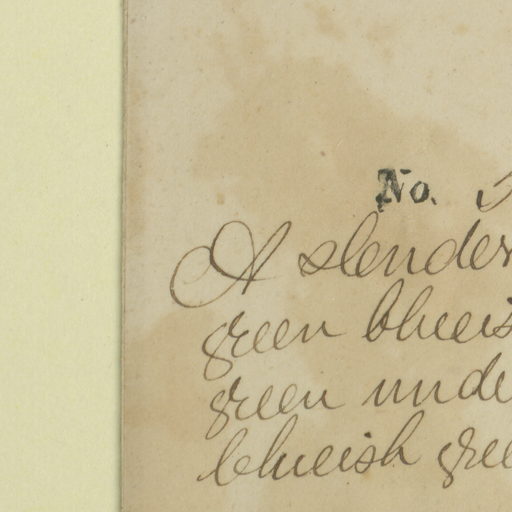 No.
A slender
green blueis
green unde
blueish gree